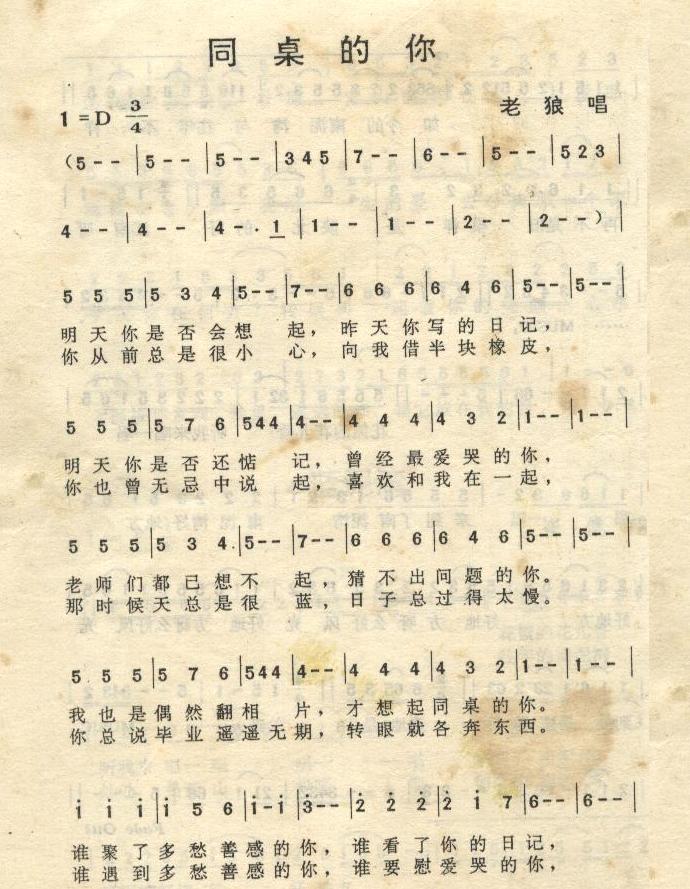 同桌的你
老狼唱
1=D 3/4
(5-- | 5-- | 5-- | 345 | 7-- | 6-- | 5-- | 523 |
4-- | 4-- | 4-·1 | 1-- | 1-- | 2-- | 2--) |
5 5 5 | 5 3 4 | 5-- | 7-- | 6 6 6 | 6 4 6 | 5-- | 5-- |
明天你是否会想 起，昨天你写的日记，
你从前总是很小 心，向我借半块橡皮，
5 5 5 | 5 7 6 | 544 | 4-- | 4 4 4 | 4 3 2 | 1-- | 1-- |
明天你是否还惦 记，曾经最爱哭的你，
你也曾无忌中说 起，喜欢和我在一起，
5 5 5 | 5 3 4 | 5-- | 7-- | 6 6 6 | 6 4 6 | 5-- | 5-- |
老师们都已想不 起，猜不出问题的你。
那时候天总是很 蓝，日子总过得太慢。
5 5 5 | 5 7 6 | 544 | 4-- | 4 4 4 | 4 3 2 | 1-- | 1-- |
我也是偶然翻相 片，才想起同桌的你。
你总说毕业遥遥无期，转眼就各奔东西。
i i i | i 5 6 | i-i | 3̇-- | 2̇ 2̇ 2̇ | 2̇ i 7 | 6-- | 6-- |
谁聚了多愁善感的你，谁看了你的日记，
谁遇到多愁善感的你，谁要慰爱哭的你，